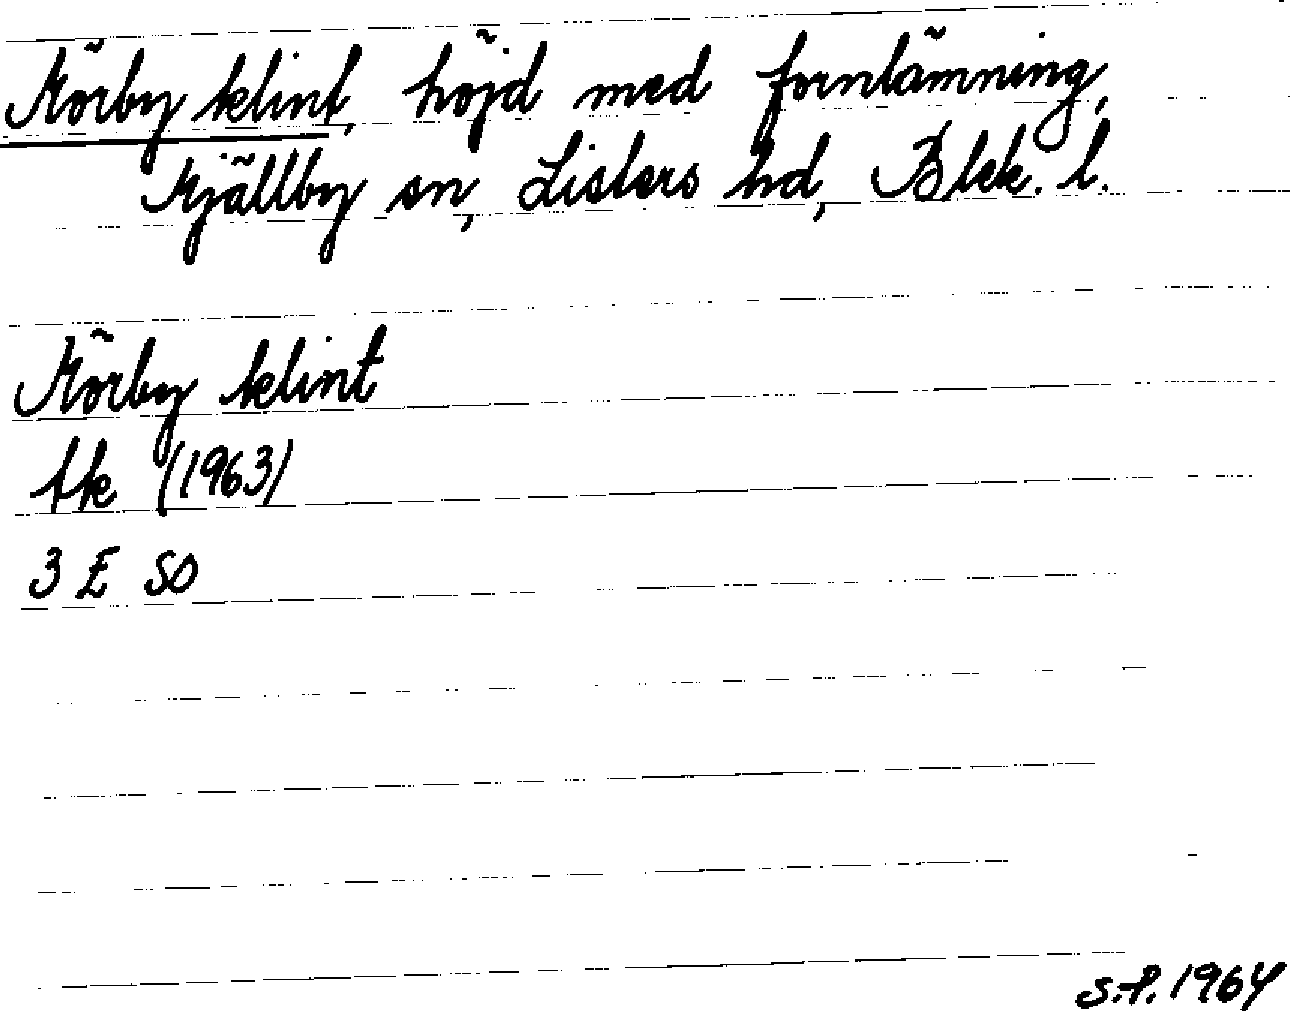 Körby klint, höjd med fornlämning,
Mjällby sn, Listers hd, Blek. l.
Körby klint
tk (1963)
3 E SO
S.P. 1964